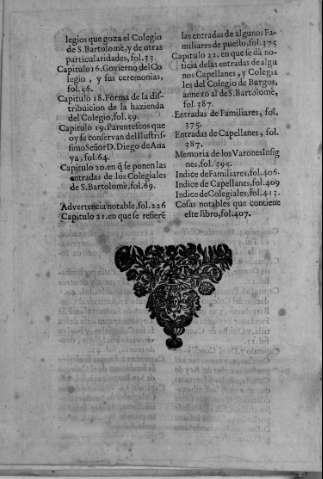 legios que goza el Colegio
de S. Bartolome, y de otras
particularidades, fol. 53
Capitulo 16. Govierno del Co
legio, y sus ceremonias,
fol. 56.
Capitulo 18. Forma de la dis-
tribuicion de la hazienda
del Colegio, fol. 59.
Capitulo 19. Parentescos que
oy se conservan del Ilustris-
simo Señor D. Diego de Ana
ya, fol. 64.
Capitulo 20. en q̃ se ponen las
entradas de los Colegiales
de S. Bartolome, fol. 69.
Advertencia notable, fol. 226
Capitulo 21. en que se refierẽ
las entradas de algunos Fa-
miliares de pueblo, fol. 375
Capitulo 22. en que se dà no-
ticia de las entradas de algu
nos Capellanes, y Colegia
les del Colegio de Burgos,
anexo al de S. Bartolome,
fol. 387.
Entradas de Familiares, fol.
375.
Entradas de Capellanes, fol.
387.
Memoria de los Varones Insig
nes, fol. 395.
Indice de Familiares, fol. 406.
Indice de Capellanes, fol. 409
Indice de Colegiales, fol. 413.
Cosas notables que contiene
este libro, fol. 407.